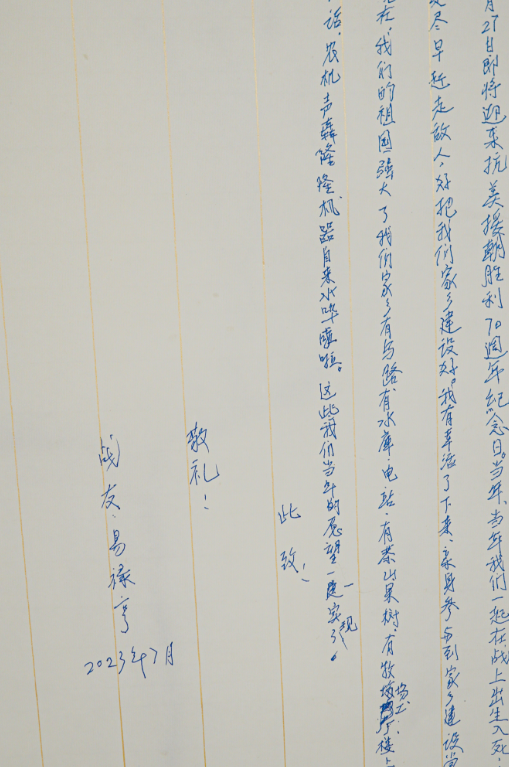 月27日即将迎来抗美援朝胜利70週年纪念日。当年、当年我们一起在战上出生入死
尽早赶走敌人，好把我们家乡建设好。我有幸活了下来、亲身参与到家乡建设当
在，我们的祖国强大了我们家乡有马路有水库、电站、有茶山果树、有牧场 楼上
话，农机声轰隆隆机器自来水哗啦啦。这些我们当年的愿望一一实现了。
此致！
敬礼！
战友：易禄亨
2023年7月